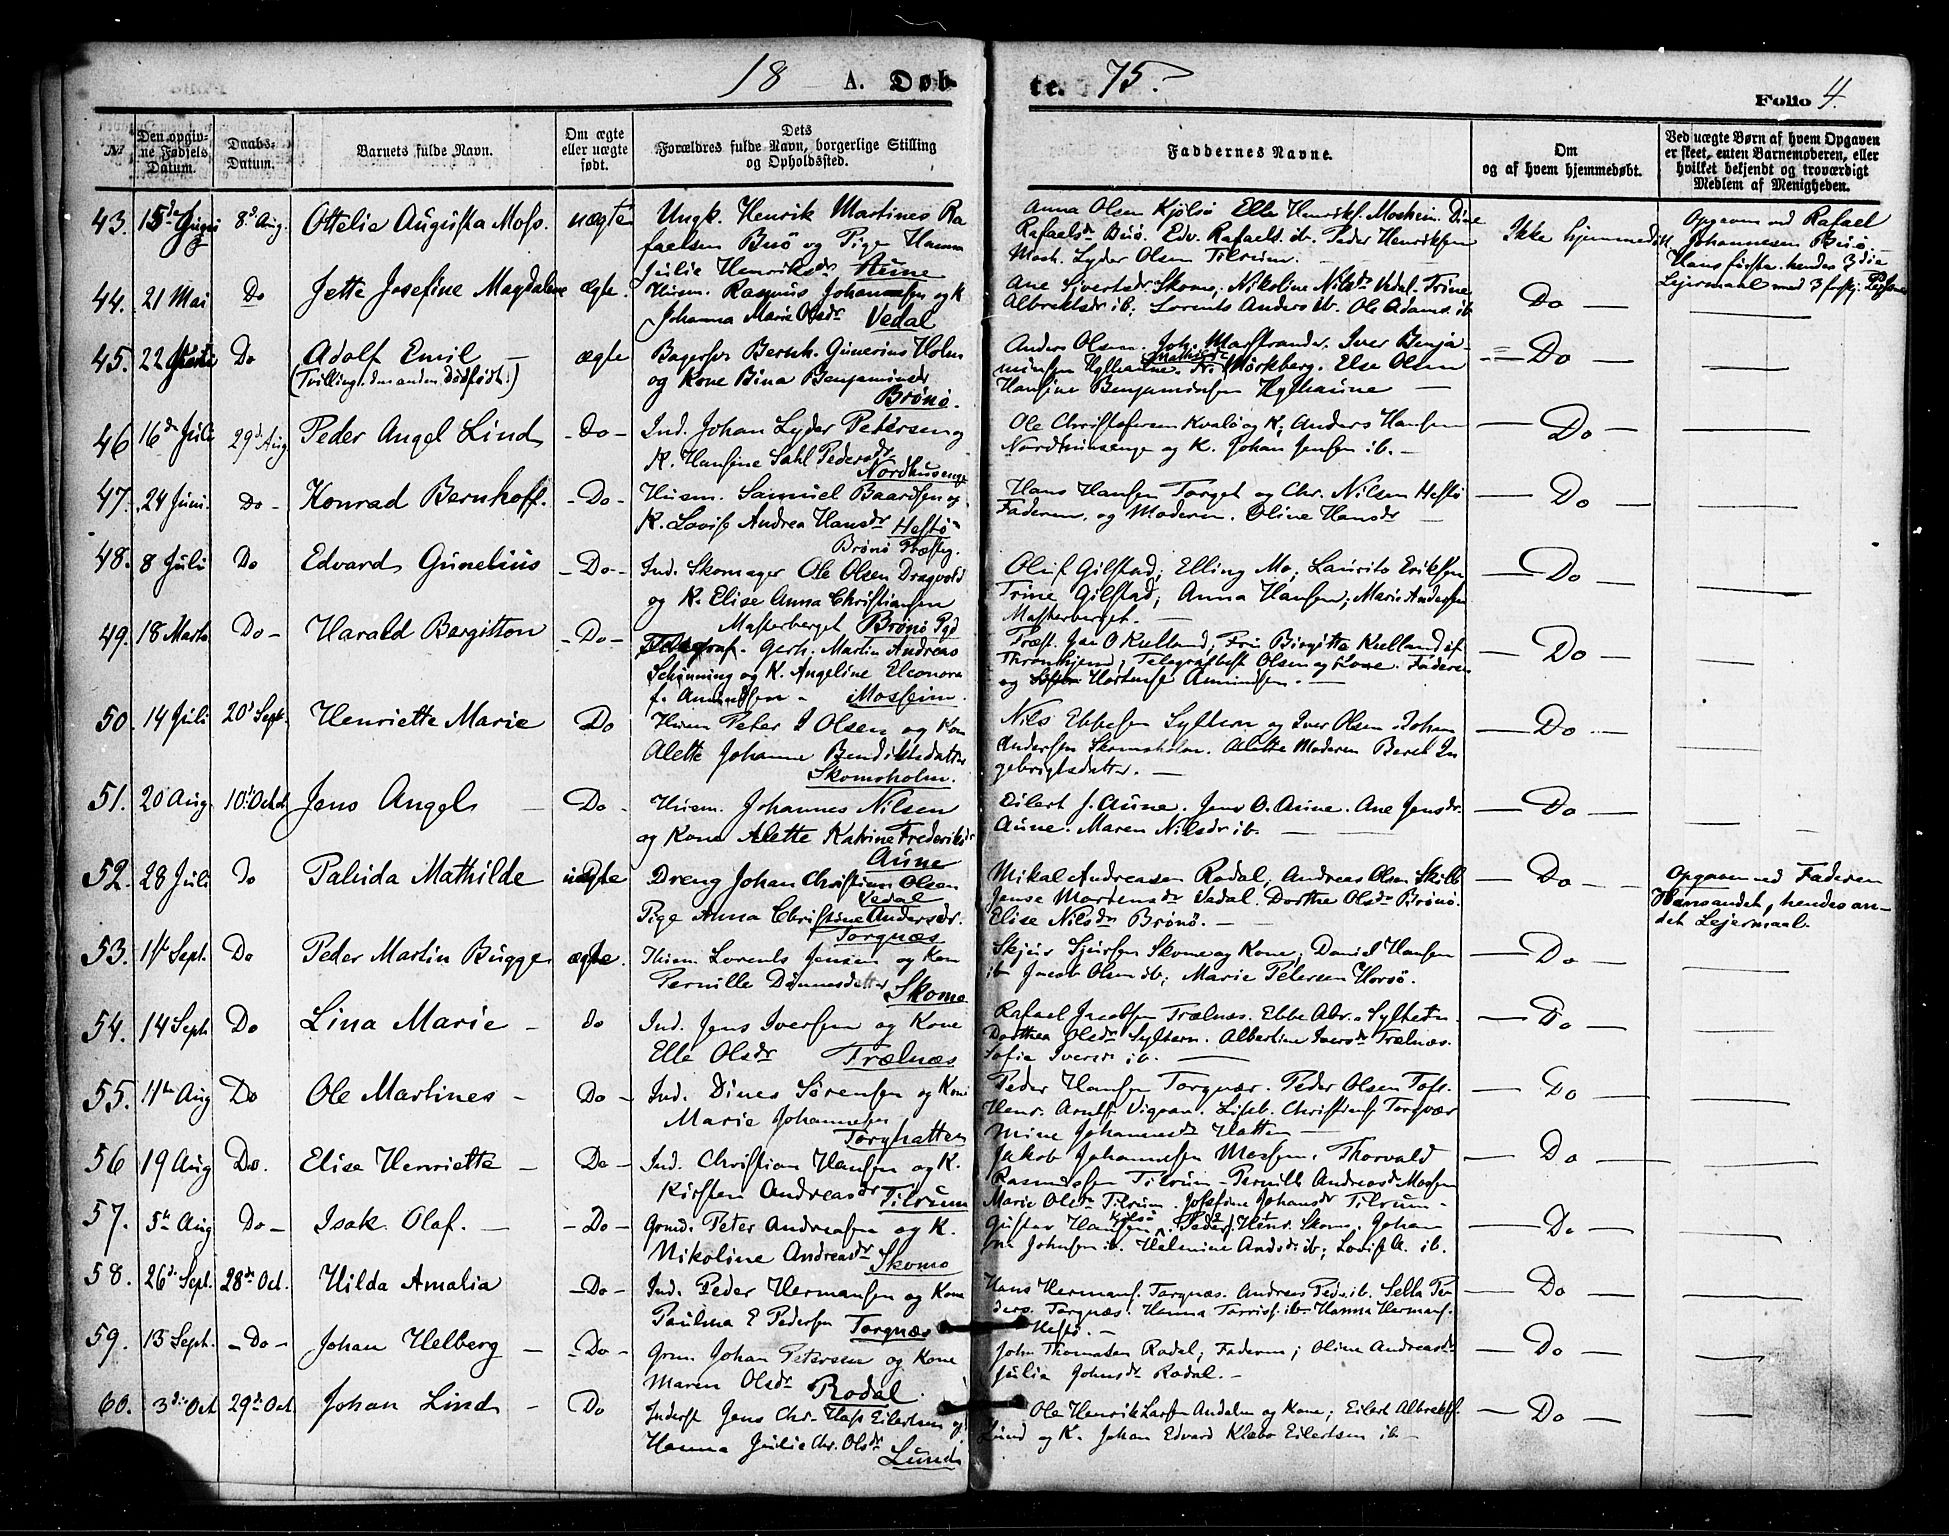 18 A. Døb-
te. 75.
Folio 4.
№
Den opgiv-
ne Fødsels
Datum.
Daabs-
Datum.
Barnets fulde Navn.
Om ægte
eller uægte
født.
Dets
Forældres fulde Navn, borgerlige Stilling
og Opholdssted.
Faddernes Navne.
Om
og af hvem hjemmedøbt.
Ved uægte Børn af hvem Opgaven
er skeet, enten Barnemoderen, eller
hvilket bekjendt og troværdigt
Medlem af Menigheden.
43. 8de Aug. Ottelie Augusta Moss. uægte
Ungk. Henrik Martines Ra
faelsen Buø og Pige Hanna
Julie Henriksdr Aune
Anna Olsen Kjølsø Elle Henrikss. Mosheim. Dine
Rafaelsdr Buø. Edv. Rafaels. ib. Peder Henriksen
Mosh. Lyder Olsen Tilrum.
Ikke hjemmedøbt
Opgaven ved Rafael
Johannesen Buø.
Hans første, hendes 3die
Lejermaal med 3 forskj.
44. 21 Mai Do Jette Josefine Magdalene ægte.
Huusm. Rasmus Johannesen og K
Johanna Marie Olsdr Vedal
Ane Sivertsdr Skomo, Nikoline Nilsdr Vedal. Trine
Albrektsdr ib; Lorents Anders ib. Ole Adams. ib
Do
45. 22 Do Adolf Emil ægte
(Tvilling, den anden dødfødt.)
Bagersv. Bernh. Gunerius Holm
og Kone Bina Benjaminsdr
Brønø.
Anders Olsen. Joh. Marstrander. Iver Benja
minsen Hylhaune. Fr. Mathilde Mørkberg. Else Olsen
Hansine Benjaminsen Hylhaune
Do
46 16de Juli 29de Aug Peder Angel Lind Do
Ind. Johan Lyder Petersen og
K. Hansine Sahl Pedersdr
Nordhusenge
Ole Christofersen Kvalø og K; Anders Hansen
Nordhuusenge og K. Johan Jensen ib.
Do
47. 24 Juni. Do Konrad Bernhoft. Do
Huusm. Samuel Baardsen og
K. Lovise Andrea Hansdr Hestø
Brønø Præsteg.
Hans Hansen Torget og Chr. Nilsen Hestø
Faderen, og Moderen. Oline Hansdr
Do
48. 8 Juli Do Edvard Gunelius Do
Ind. Skomager Ole Olsen Dragvold
og K. Elise Anna Christiansen
Masterberget Brønø Pgd
Oluf Gilstad; Elling Mo; Laurits Eriksen
Trine Gilstad; Anna Hansen; Marie Andersen
Masterberget.
Do
49. 18 Marts Do Harald Bergitton Do
Telegraf. Gerh. Martin Andreas
Schønning og K. Angeline Eleonora
f. Amundsen Mosheim.
Præst. O Kulland, Frøk Birgitte Kulland af
Thronhjem; Telegrafbest Olsen og Kone. Faderen
og Hortense Amundsen.
Do
50. 14 Juli 20de Sept. Henriette Marie Do
Huusm Peter I Olsen og Kone
Alette Johanne Bendiktsdatter
Skomoholm.
Nils Ebbesen Sylteren og Iver Olsen. Johan
Andersen Skomoholm. Alette Moderen Beret In
gebrigtsdatter.
Do
51. 20 Aug. 10de Octob Jens Angel Do
Huusm. Johannes Nilsen
og Kone Alette Katrine Frederiksdr
Aune
Eilert J. Aune. Jens O. Aune. Ane Jensdr.
Aune. Maren Nilsdr ib.
Do
52. 28 Juli Do Palida Mathilde uægte
Dreng Johan Christian Olsen
Vedal
Pige Anna Christine Andersdr.
Torgnæs
Mikal Andreasen Rodal, Andreas Olsen Skille
Jense Mortensdr Vedal. Dorthe Olsdr Brønø.
Elise Nilsdr Brønø.
Do
Opgaven ved Faderen
Hans andet, hendes an-
det Lejermaal.
53. Sept. Do Peder Martin Bugge ægte.
Huusm. Lorents Jensen og Kone
Pernille Dønnesdatter Skomo
Skjur Sjursen Skomo og Kone, Daniel Hansen
ib Jacob Olsen ib; Marie Petersen Horsø.
Do
54. 14 Sept Do Lina Marie do
Ind. Jens Iversen og Kone
Elle Olsdr Trælnæs
Rafael Jacobsen Trælnæs. Ebbe Abr. Sylteren
Dorthea Olsdr Sylteren. Albertine Iversdr Trælnæs.
Sofia Iversen ib.
Do
55. Aug Do Ole Martines Do
Ind. Dines Sørensen og Kone
Marie Johannesen
Torghatten
Peder Hansen Torgnæs. Peder Olsen Toft.
Henr. Arntsen Vigran. Lisb. Christians. Torgvær
Mine Johannesdr Hatten
Do
56 19 Aug Do. Elise Henriette Do
Ind. Christian Hansen og K.
Kirsten Andreasdr Tilrum
Jakob Johannesen Mosheim, Thorvald
Rasmussen Tilrum. Pernille Andreasdr Mosheim
Marie Olsdr Tilrum. Josefine Johansdr Tilrum
Do
57. 5te Aug Do Isak Olaf. Do
Grmd. Peter Andreasen og K.
Nikoline Andreasdr Skomo
Gustav Hansen Kjølsø. Peder Henr. Skomo. Johan
Johnsen ib. Helmine Andsdr ib; Lovise A. ib.
Do
58. 26de Sept. 28de Oct. Hilda Amalia Do
Ind. Peder Hermansen og Kone
Paulina E Pedersen Torgnæs
Hans Hermans. Torgnæs. Andreas Peds. ib. Sella Pe
ders. Torgnæs. Hanna Torriss. ib. Hanna Hermans.
Hestø.
Do
59. 13 Sept. Do Johan Helberg Do
Grm. Johan Petersen og Kone
Maren Olsdr Rodal
John Thomassen Rodal; Faderen; Oline Andreasdr
Julia Johnsdr Rodal.
Do
60. 3die Oct 29de Oct Johan Lind Do
Inderst Jens Chr. Hass Eilertsen og
Hanna Julie Chr. Olsdr
Lund
Ole Henrik Larsen Andalen og Kone; Eilert Albrekts.
Lund og K. Johan Edvard Klæbo Eilertsen ib
Do